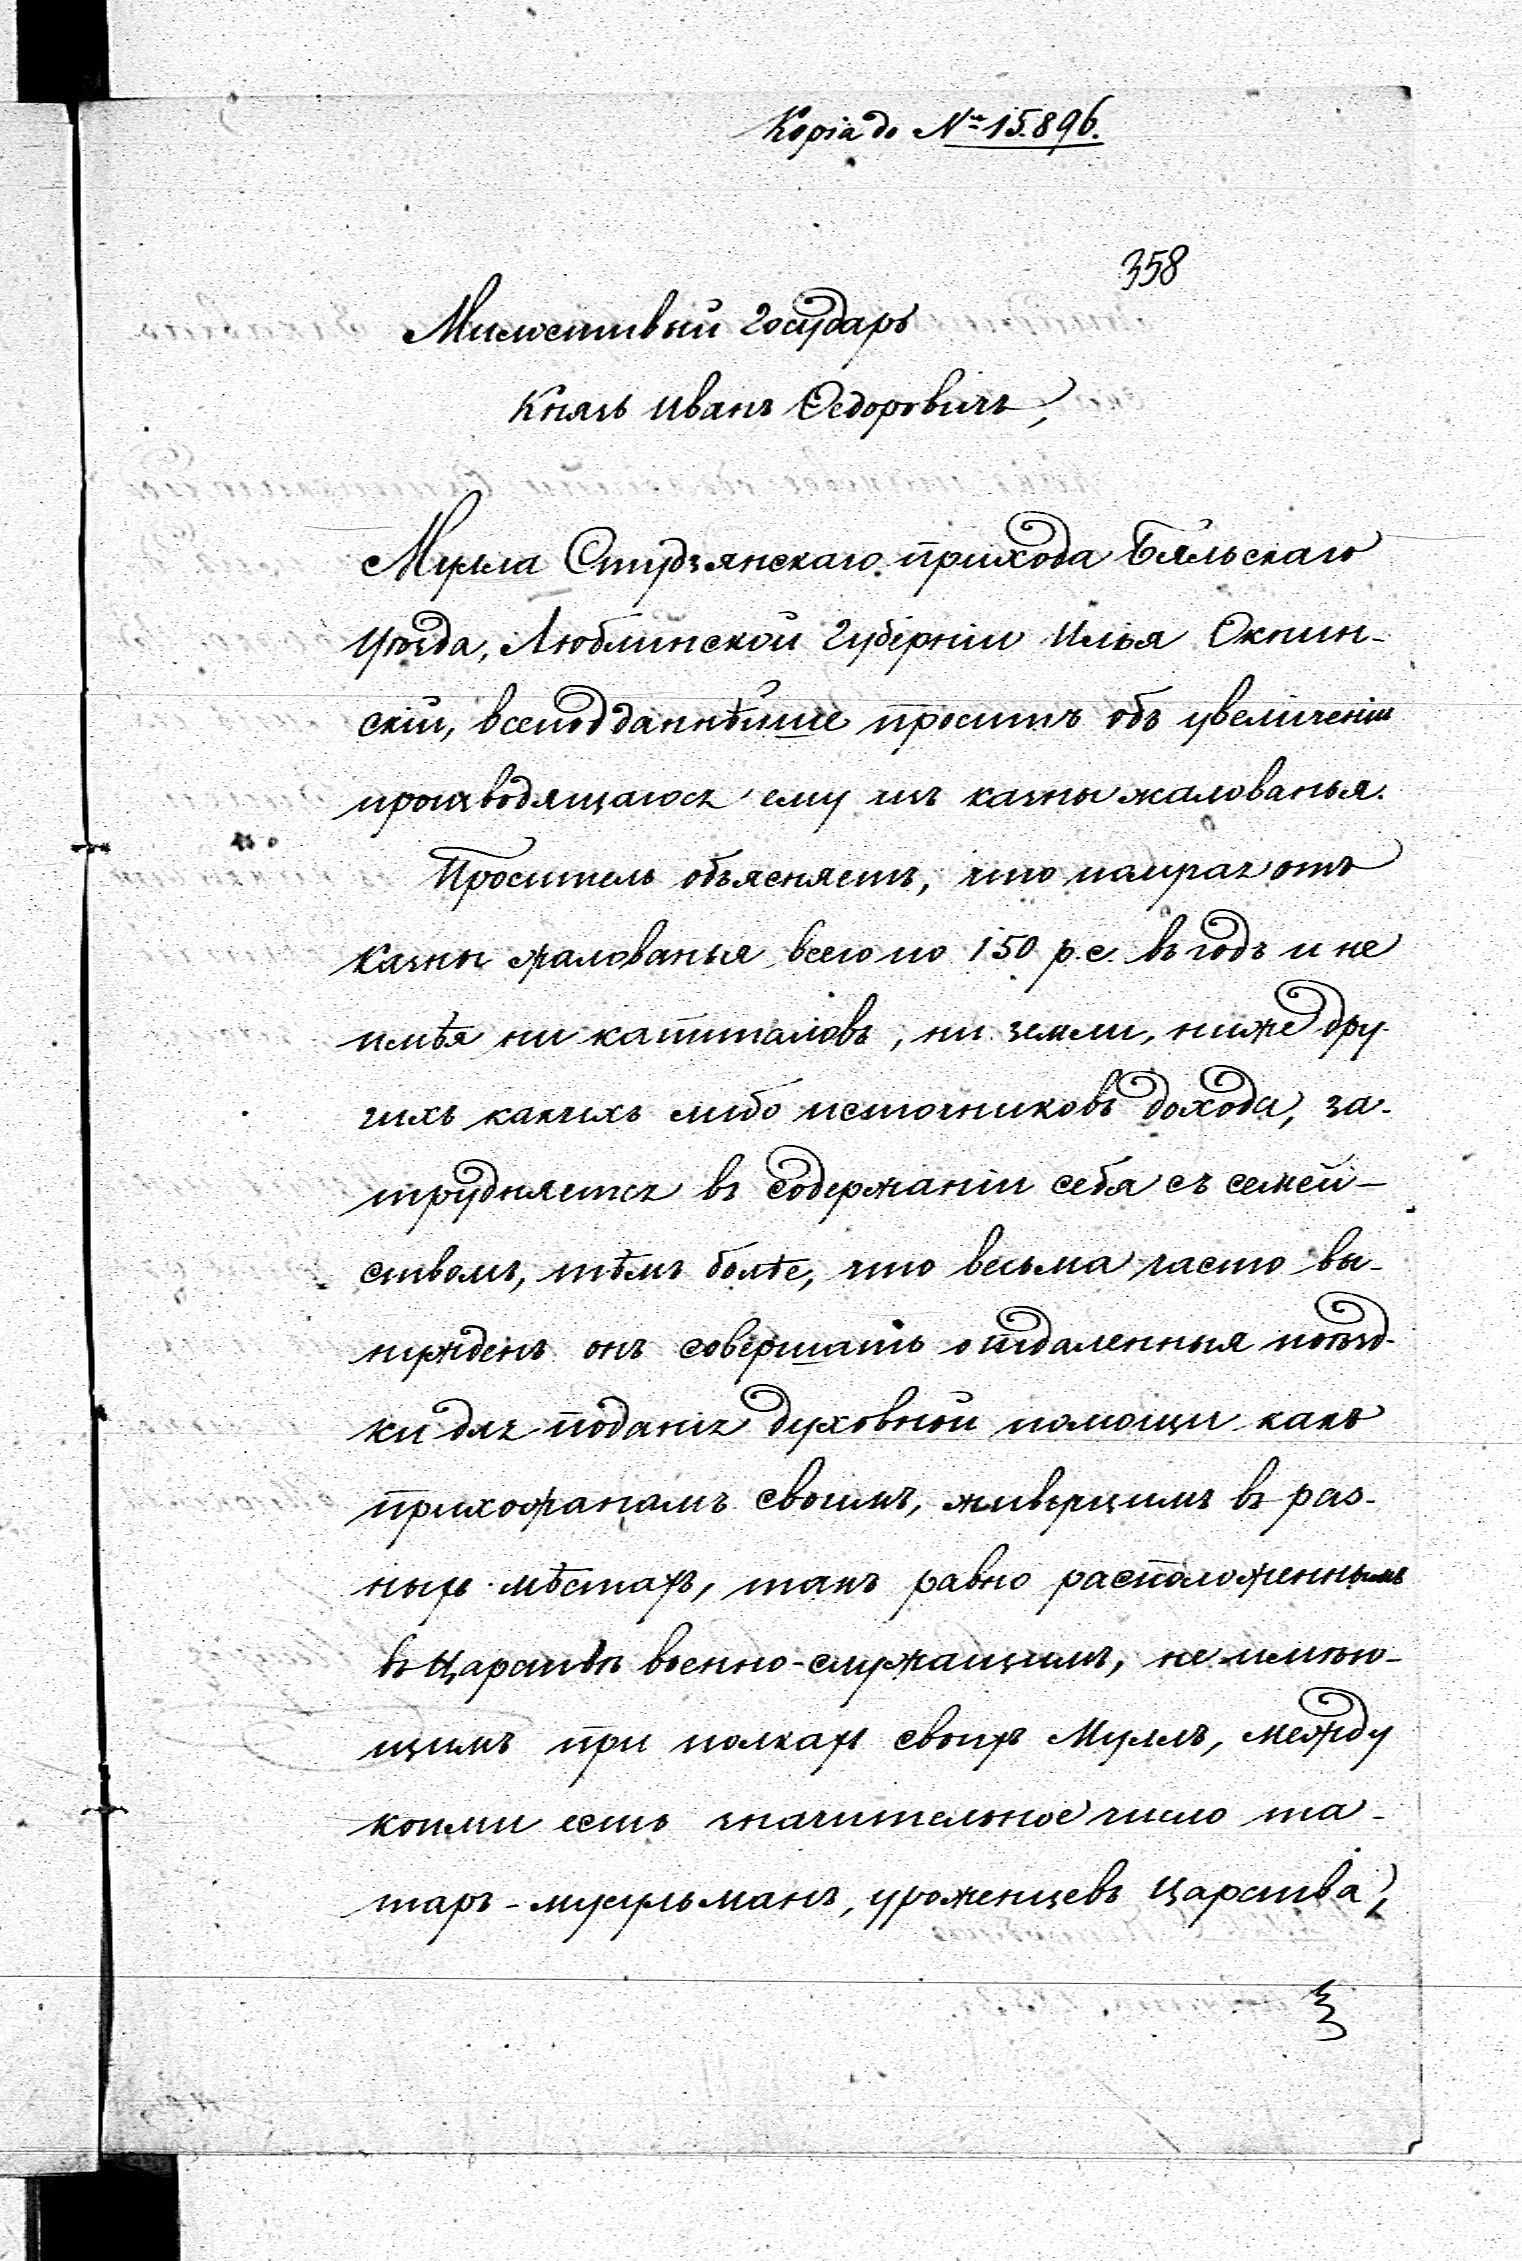 Kopia do № 15.896.
358
Милостивый Государь
Князь Иванъ Ѳедоровичъ,
Мулла Студзянскаго прихода Бяльскаго
Уѣзда, Люблинской Губерніи Илья Окмин-
скій, всеподданнѣйше проситъ объ увеличеніи
производящагося ему изъ казны жалованья.
Проситель объясняетъ, что получая отъ
казны жалованья всего по 150 р. с. въ годъ и не
имѣя ни капиталовъ, ни земли, ниже дру-
гихъ какихъ либо источниковъ дохода, за-
трудняется въ содержаніи себя съ семей-
ствомъ, тѣмъ болѣе, что весьма часто вы-
нужденъ онъ совершать отдаленныя поѣзд-
ки для поданія духовной помощи какъ
прихожанамъ своимъ, живущимъ въ раз-
ныхъ мѣстахъ, такъ равно расположеннымъ
въ Царствѣ военно-служащимъ, не имѣю-
щимъ при полкахъ своихъ Муллъ, между
коими есть значительное число та-
таръ-мусульманъ, уроженцевъ Царства,